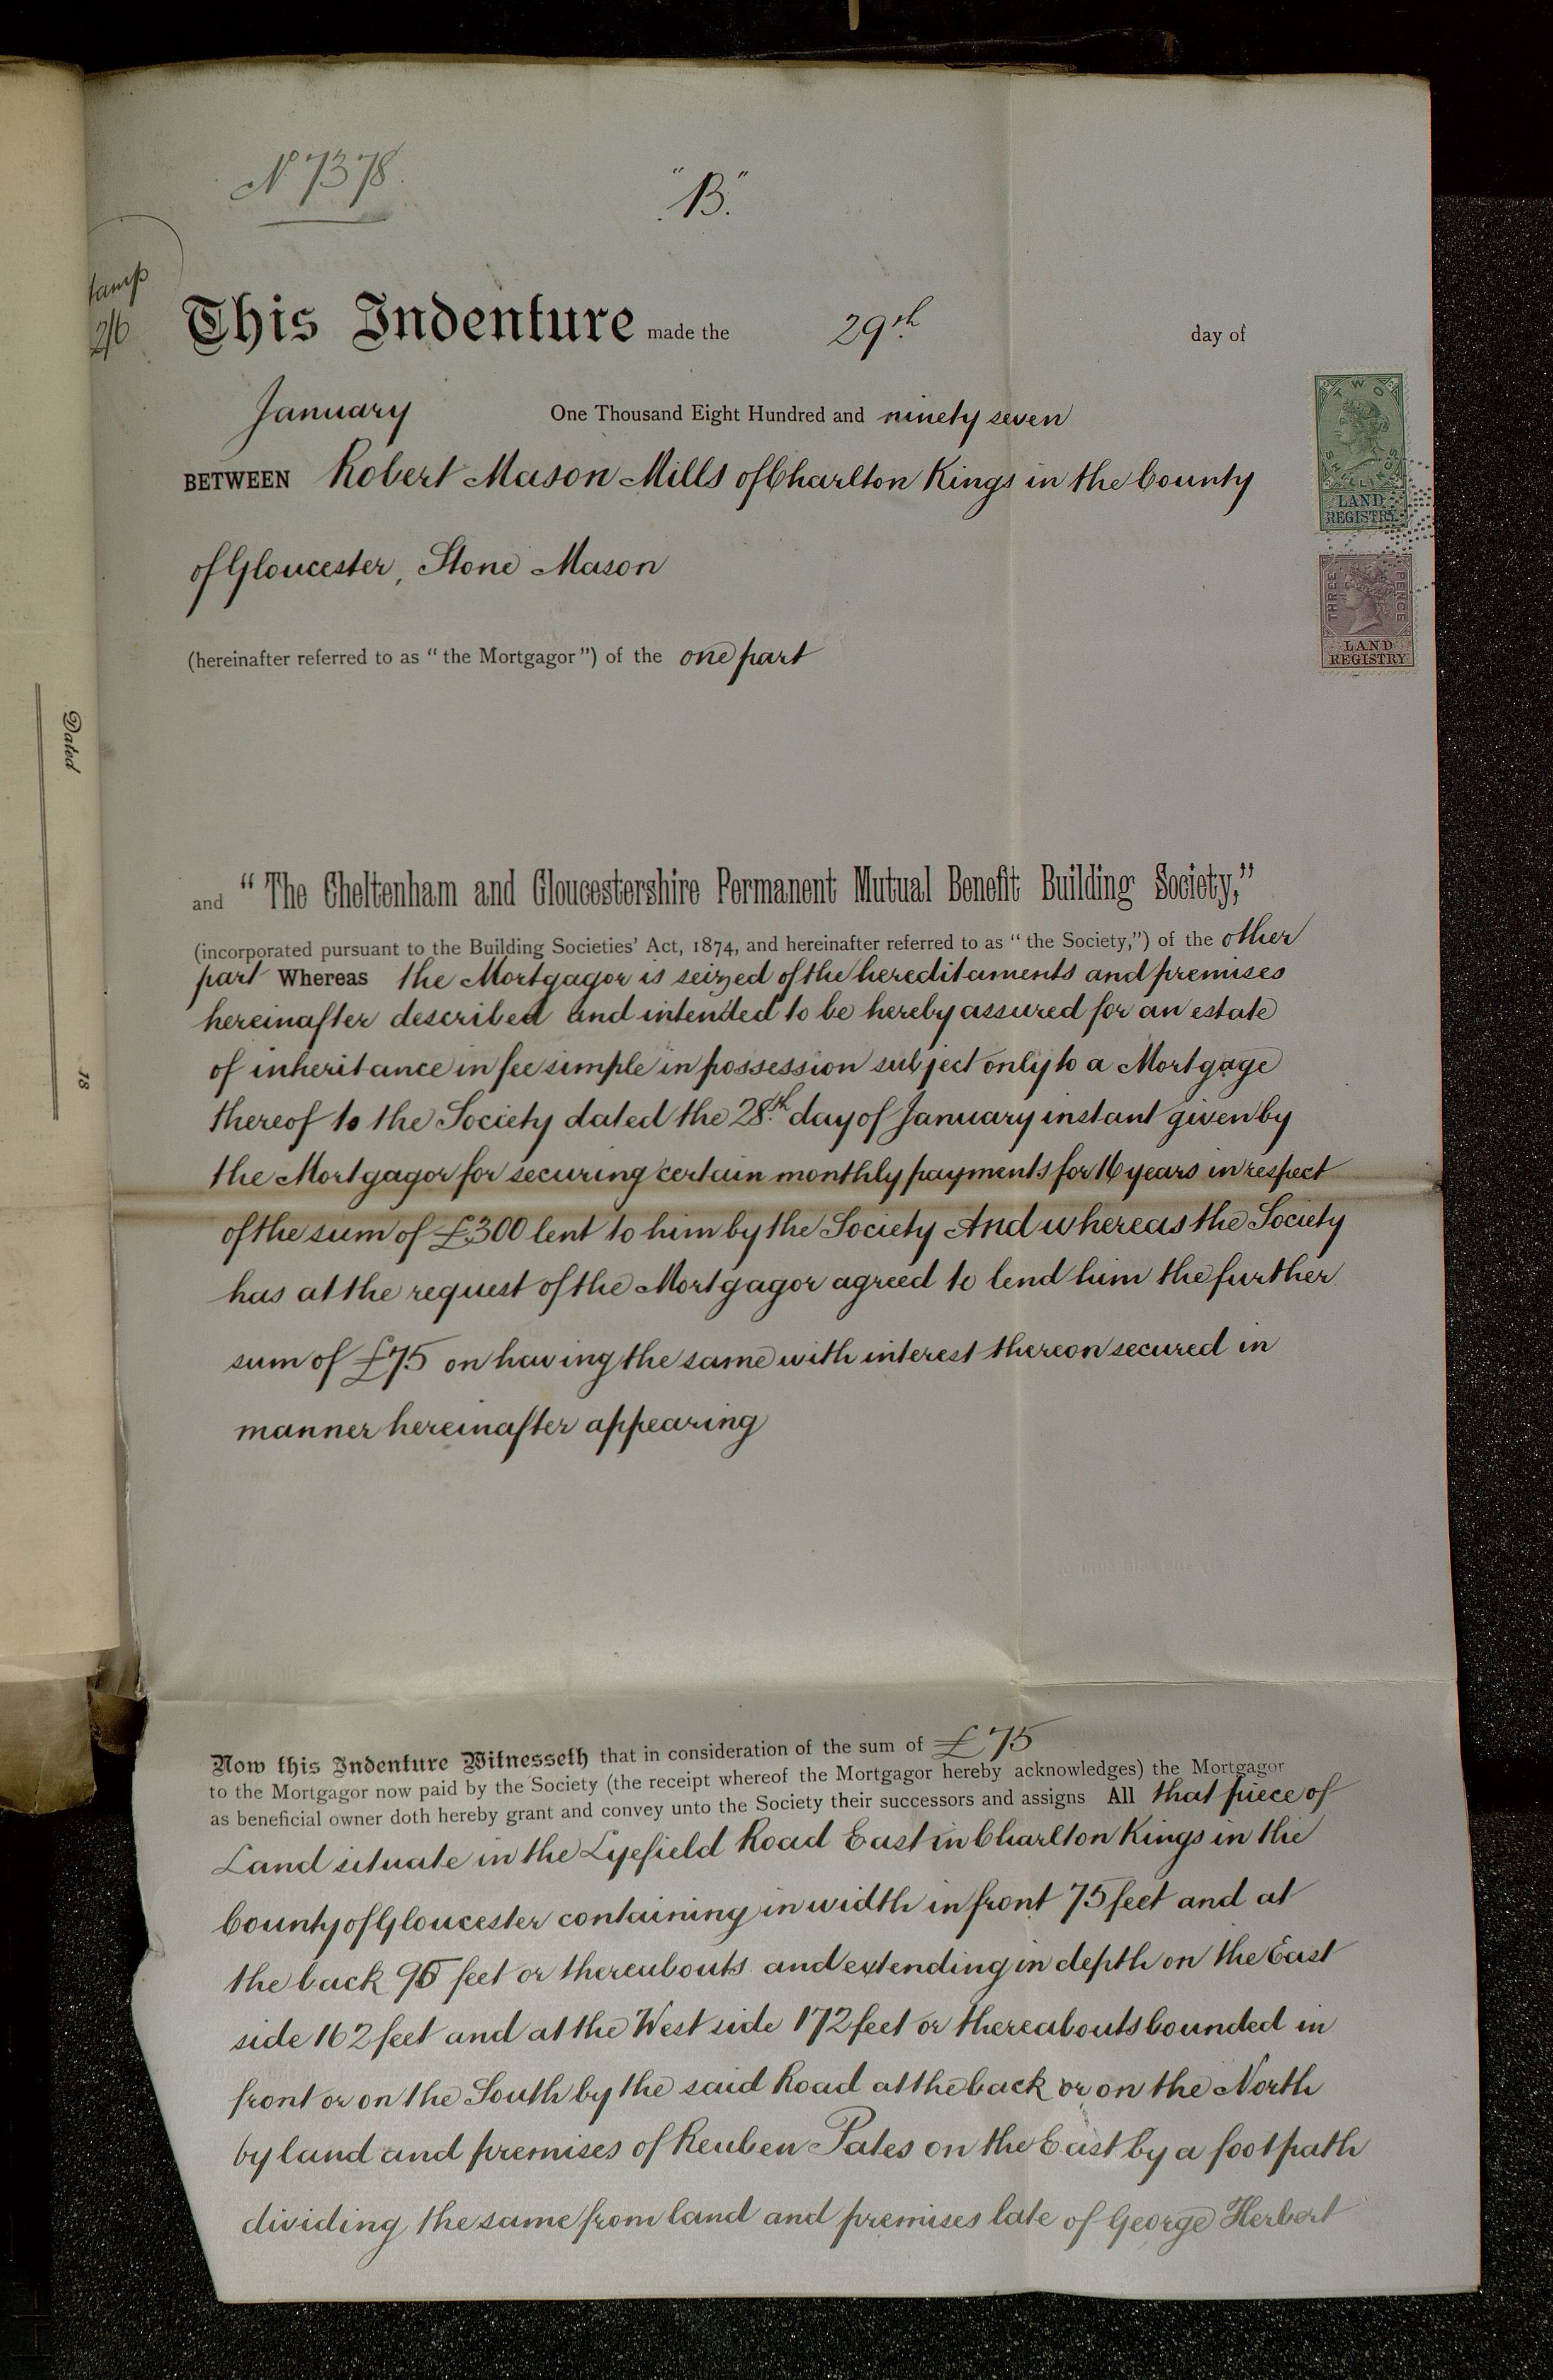 No 7378.
"B."
tamp
2/6
This Indenture made the 29th. day of
January One Thousand Eight Hundred and ninety seven
BETWEEN Robert Mason Mills of Charlton Kings in the County
of Gloucester, Stone Mason
(hereinafter referred to as "the Mortgagor") of the one part
TWO
SHILLINGS
LAND
REGISTRY
THREE PENCE
LAND
REGISTRY
Dated
18
and "The Cheltenham and Gloucestershire Permanent Mutual Benefit Building Society,"
(incorporated pursuant to the Building Societies' Act, 1874, and hereinafter referred to as "the Society,") of the other
part Whereas the Mortgagor is seized of the hereditaments and premises
hereinafter described and intended to be hereby assured for an estate
of inheritance in fee simple in possession subject only to a Mortgage
thereof to the Society dated the 28th. day of January instant given by
the Mortgagor for securing certain monthly payments for 16 years in respect
of the sum of £300 lent to him by the Society And whereas the Society
has at the request of the Mortgagor agreed to lend him the further
sum of £75 on having the same with interest thereon secured in
manner hereinafter appearing
Now this Indenture Witnesseth that in consideration of the sum of £75
to the Mortgagor now paid by the Society (the receipt whereof the Mortgagor hereby acknowledges) the Mortgagor
as beneficial owner doth hereby grant and convey unto the Society their successors and assigns All that piece of
Land situate in the Lyefield Road East in Charlton Kings in the
County of Gloucester containing in width in front 75 feet and at
the back 95 feet or thereabouts and extending in depth on the East
side 162 feet and at the West side 172 feet or thereabouts bounded in
front or on the South by the said Road at the back or on the North
by land and premises of Reuben Pates on the East by a footpath
dividing the same from land and premises late of George Herbert